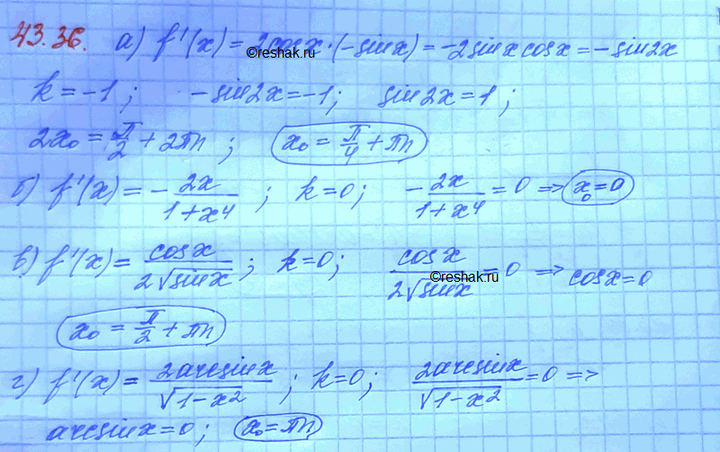 43.36. а) f'(x) = 2cosx·(-sinx) = -2sinx cosx = -sin2x
©reshak.ru
k = -1; -sin2x = -1; sin2x = 1;
2x₀ = π/2 + 2πn; x₀ = π/4 + πn
б) f'(x) = - 2x/(1+x⁴); k = 0; - 2x/(1+x⁴) = 0 => x₀ = 0
в) f'(x) = cosx/(2√sinx); k = 0; cosx/(2√sinx) = 0 => cosx = 0
©reshak.ru
x₀ = π/2 + πn
г) f'(x) = 2arcsinx/√(1-x²); k = 0; 2arcsinx/√(1-x²) = 0 =>
arcsinx = 0; x₀ = πn